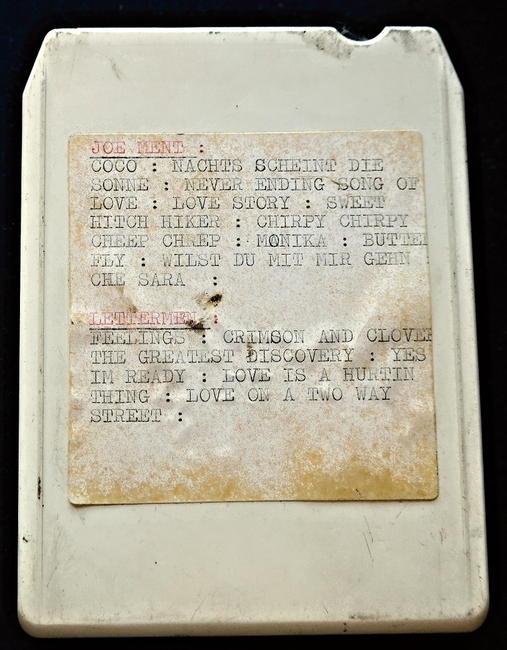 JOE MENT :
COCO : NACHTS SCHEINT DIE
SONNE : NEVER ENDING SONG OF
LOVE : LOVE STORY : SWEET
HITCH HIKER : CHIRPY CHIRPY
CHEEP CHEEP : MONIKA : BUTTER
FLY : WILST DU MIT MIR GEHN
CHE SARA :
LETTERMEN :
FEELINGS : CRIMSON AND CLOVER
THE GREATEST DISCOVERY : YES
IM READY : LOVE IS A HURTIN
THING : LOVE ON A TWO WAY
STREET :